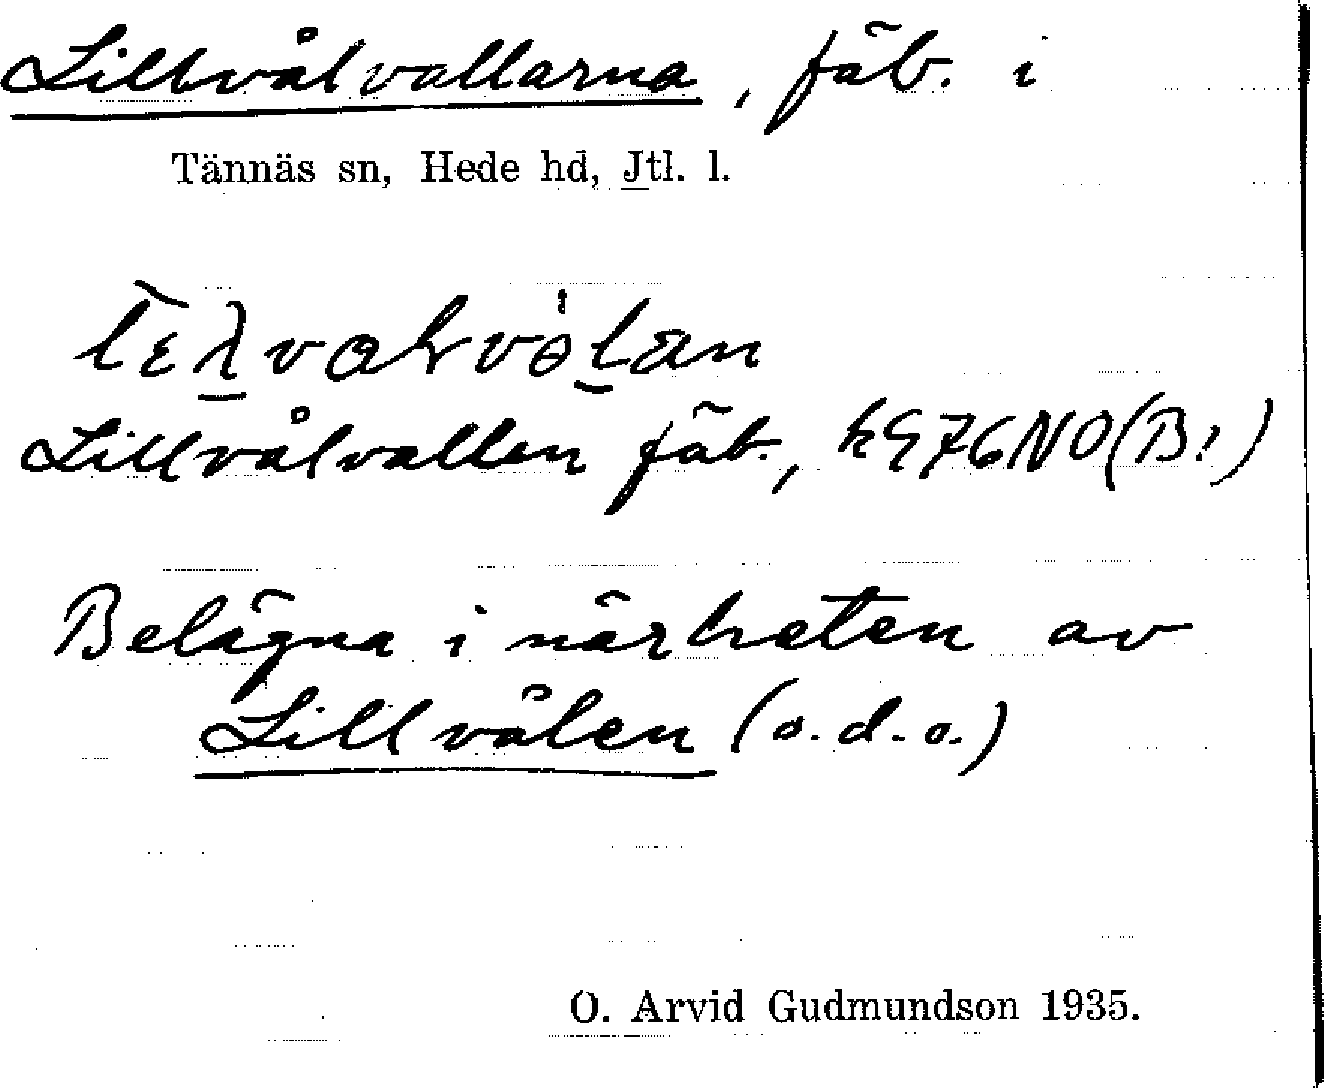 Lillvålvallarna, fäb. i
Tännäs sn, Hede hd, Jtl. l.
Lillvålvallen fäb., kG76NO(B!)
Belägna i närheten av
Lillvålen (o.d.o.)
O. Arvid Gudmundson 1935.